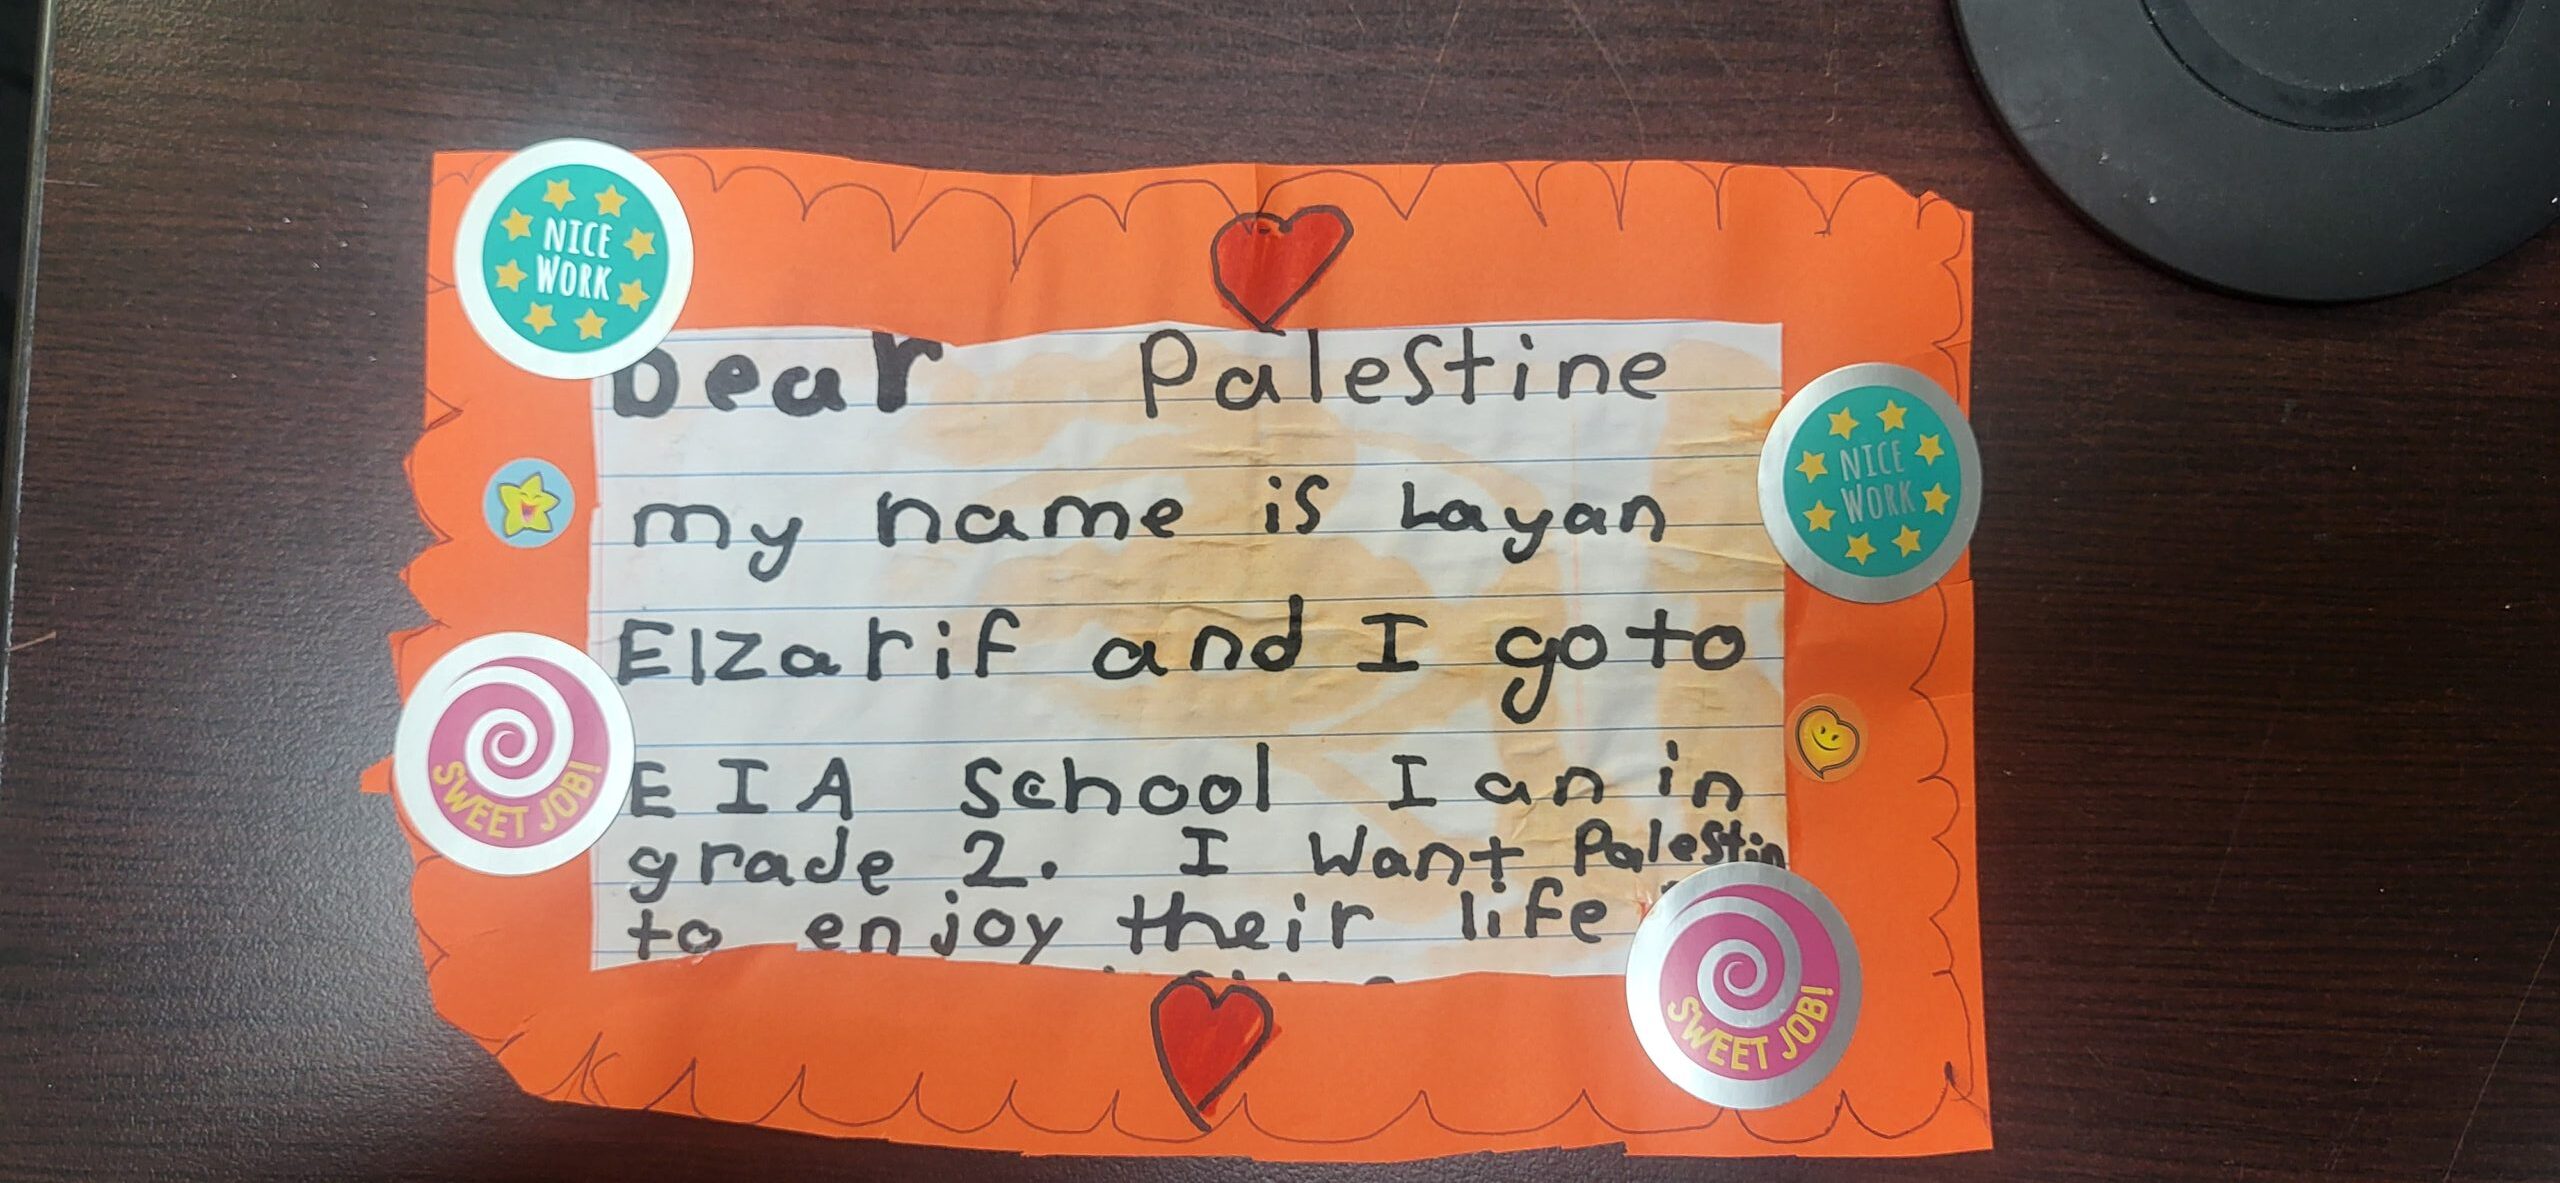 NICE
WORK
Dear Palestine
my name is Layan
NICE
WORK
Elzarif and I go to
E I A school I an in
SWEET JOB!
grade 2. I want Palestin
to enjoy their life
SWEET JOB!